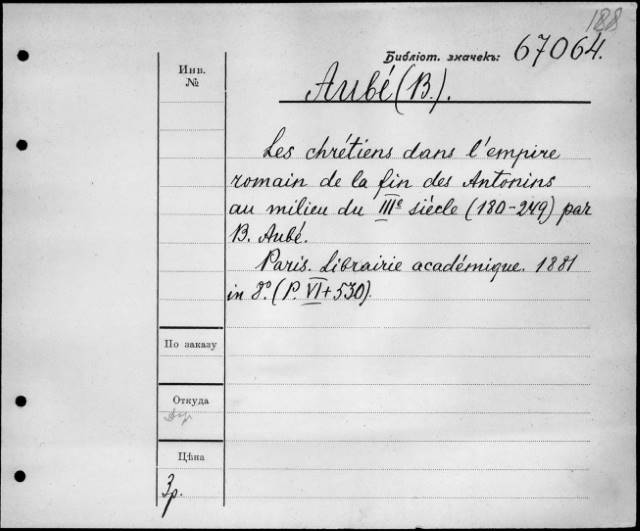 188
Библіот. значекъ: 67064.
Инв. №
Aubé (B.).
Les chrétiens dans l'empire
romain de la fin des Antonins
au milieu du IIIe siècle (180-249) par
B. Aubé.
Paris. Librairie académique. 1881
in 8°. (P. VI+530).
По заказу
Откуда
Цѣна
3р.